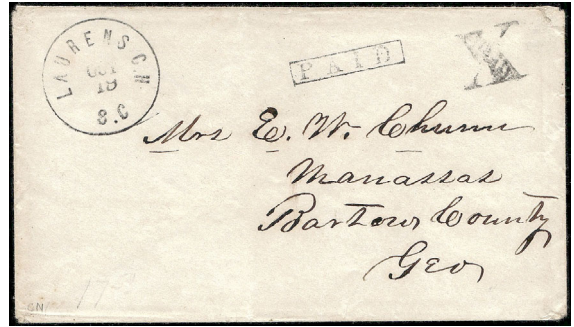 LAURENS C.H.
OCT
19
S.C
PAID
X
Mrs E. W. Chunn
Manassas
Bartow County
Geo
17
GN